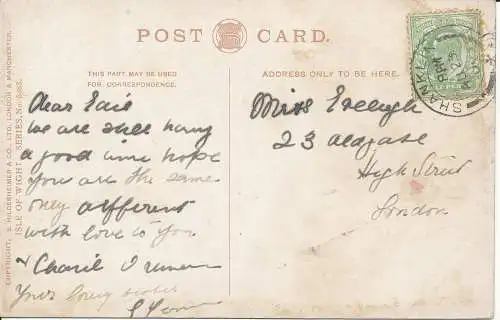 POST CARD.
THIS PART MAY BE USED
FOR CORRESPONDENCE.
ADDRESS ONLY TO BE HERE.
COPYRIGHT, S. HILDESHEIMER & CO., LTD., LONDON & MANCHESTER.
ISLE OF WIGHT SERIES, No.
SHANKLIN
Dear
we are still having
a good time hope
you are the same
only different
with love to you
& I remain
Yours loving sister
Miss
23 Aldgate
High Street
London